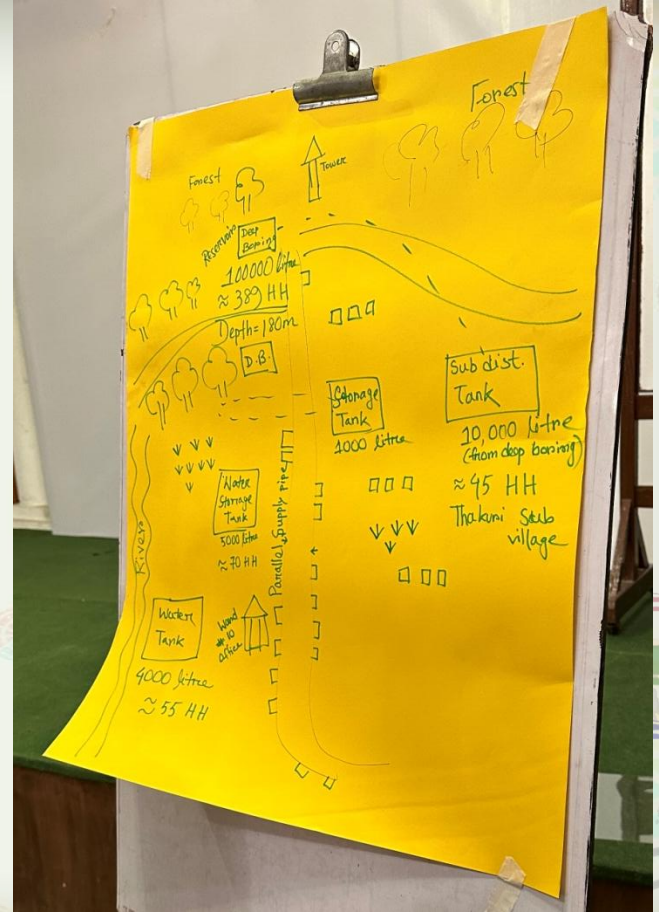 Forest
Forest
Tower
Reservoir
Deep
Boring
100000 litre
≈ 389 HH
Depth = 180m
D.B.
Storage
Tank
1000 litre
Sub dist.
Tank
10,000 litre
(from deep boring)
≈ 45 HH
Thakuri Sub
village
Water
Storage
Tank
5000 litre
≈ 70 HH
Parallel Supply pipe
River
Water
Tank
4000 litre
≈ 55 HH
Ward
# 10
office